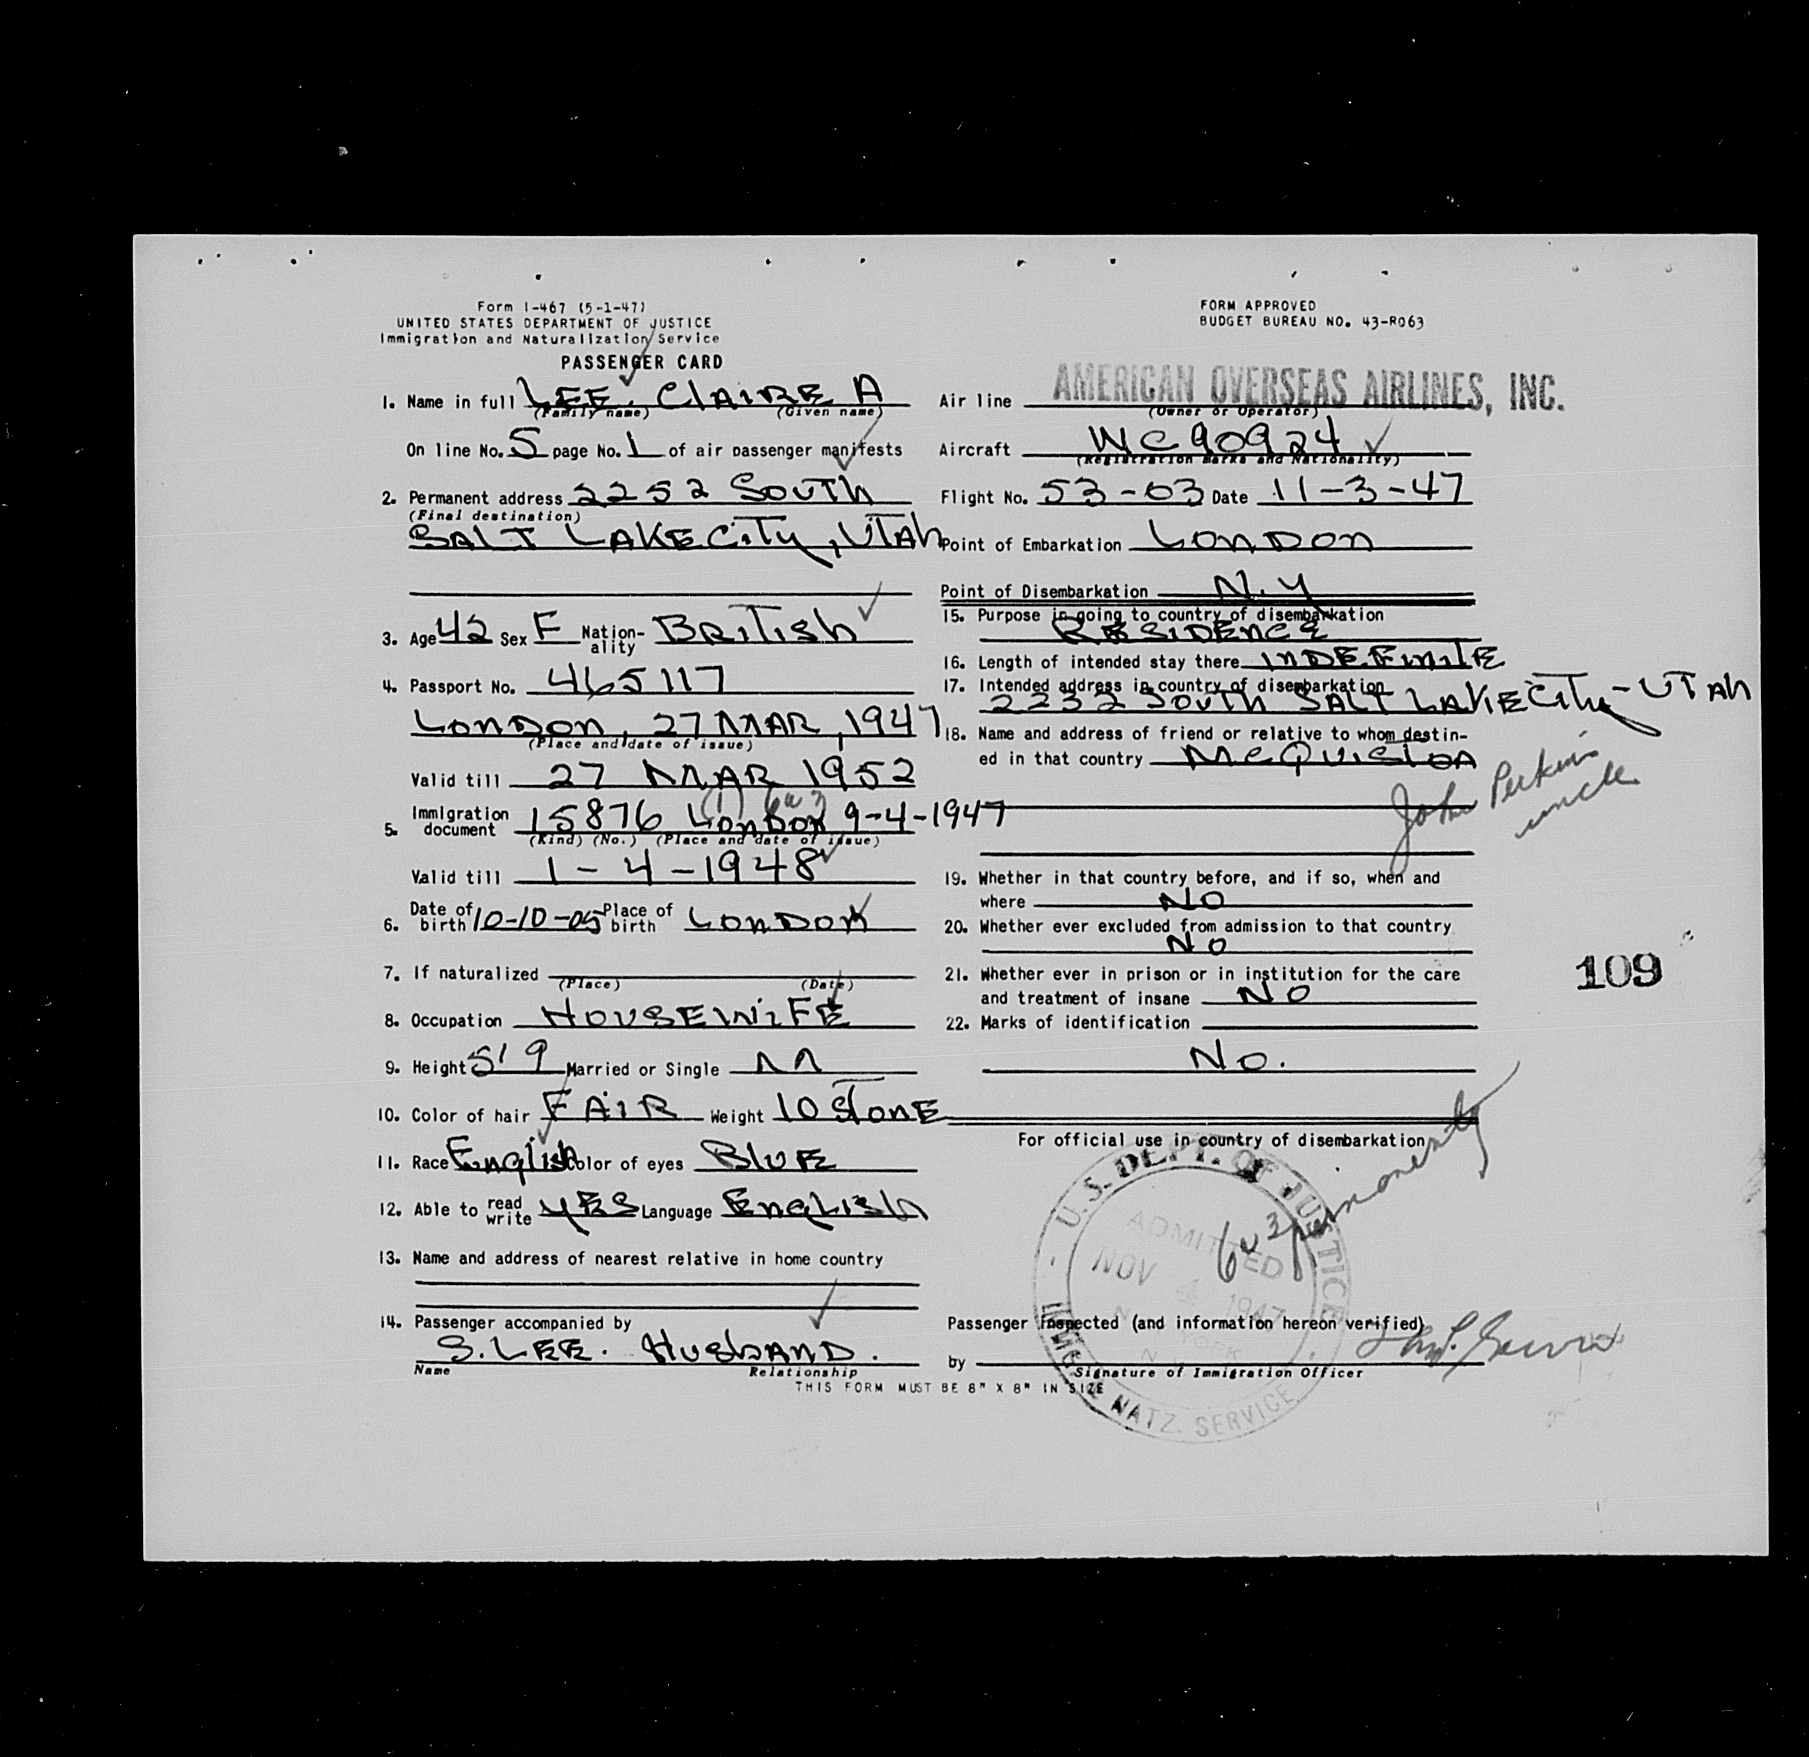 Form I-467 (5-1-47)
UNITED STATES DEPARTMENT OF JUSTICE
Immigration and Naturalization Service
PASSENGER CARD
FORM APPROVED
BUDGET BUREAU NO. 43-R063
1. Name in full LEE. CLAIRE A
(Family name) (Given name)
On line No. 5 page No. 1 of air passenger manifests
2. Permanent address 2252 SOUTH
(Final destination)
SALT LAKE CITY, UTAH
3. Age 42 Sex F Nation-ality BRITISH
4. Passport No. 465117
LONDON, 27 MAR, 1947
(Place and date of issue)
Valid till 27 MAR 1952
5. Immigration document 15876 LONDON 9-4-1947
(Kind) (No.) (Place and date of issue)
Valid till 1-4-1948
6. Date of birth 10-10-05 Place of birth LONDON
7. If naturalized
(Place) (Date)
8. Occupation HOUSEWIFE
9. Height 5'9 Married or Single M
10. Color of hair FAIR Weight 10 STONE
11. Race ENGLISH Color of eyes BLUE
12. Able to read write YES Language ENGLISH
13. Name and address of nearest relative in home country
14. Passenger accompanied by
S. LEE. HUSBAND.
Name Relationship
THIS FORM MUST BE 8" X 8" IN SIZE
Air line AMERICAN OVERSEAS AIRLINES, INC.
(Owner or Operator)
Aircraft NC90924
(Registration Marks and Nationality)
Flight No. 53-03 Date 11-3-47
Point of Embarkation LONDON
Point of Disembarkation N.Y
15. Purpose in going to country of disembarkation
RESIDENCE
16. Length of intended stay there INDEFINITE
17. Intended address in country of disembarkation
2232 SOUTH SALT LAKE CITY-UTAH
18. Name and address of friend or relative to whom destin-
ed in that country McQUISTON
John Perkins
uncle
19. Whether in that country before, and if so, when and
where NO
20. Whether ever excluded from admission to that country
NO
21. Whether ever in prison or in institution for the care
and treatment of insane NO
22. Marks of identification
NO.
109
For official use in country of disembarkation
U.S. DEPT. OF JUSTICE
ADMITTED
NOV 4 1947
NEW YORK
N.Y.
IMMG. & NATZ. SERVICE
6u3 permanently
Passenger Inspected (and information hereon verified)
by
Signature of Immigration Officer